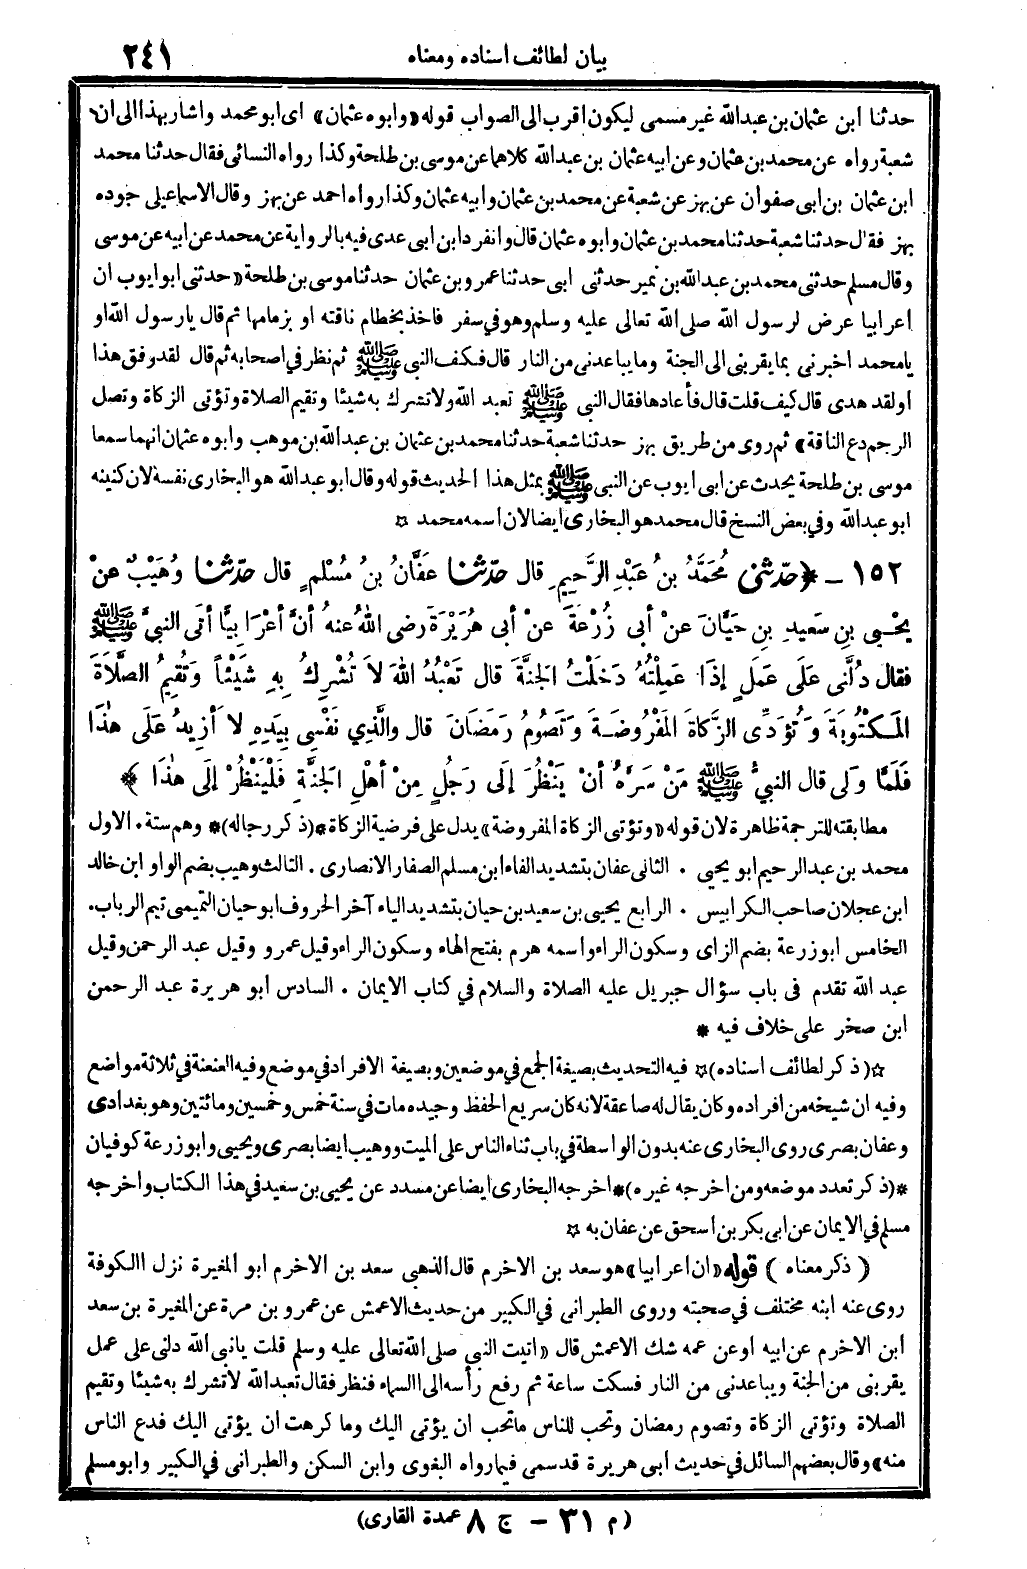 بيان لطائف اسناده ومعناه
٢٤١
حدثنا ابن عثمان بن عبدالله غير مسمى ليكون اقرب الى الصواب قوله «وابوه عثمان» اى ابو محمد واشار بهذا الى ان
شعبة رواه عن محمد بن عثمان وعن ابيه عثمان بن عبدالله كلاهما عن موسى بن طلحة وكذا رواه النسائى فقال حدثنا محمد
ابن عثمان بن ابى صفوان عن بهز عن شعبة عن محمد بن عثمان وابيه عثمان وكذا رواه احمد عن بهز وقال الاسماعيلى جوده
بهز فقال حدثنا شعبة حدثنا محمد بن عثمان وابوه عثمان قال وانفرد ابن ابى عدى فيه بالرواية عن محمد عن ابيه عن موسى
وقال مسلم حدثنى محمد بن عبدالله بن نمير حدثنى ابى حدثنا عمرو بن عثمان حدثنا موسى بن طلحة «حدثنى ابو ايوب ان
اعرابيا عرض لرسول الله صلى الله تعالى عليه وسلم وهو فى سفر فاخذ بخطام ناقته او بزمامها ثم قال يارسول الله او
يامحمد اخبرنى بما يقربنى الى الجنة وما يباعدنى من النار قال فكف النبى ﷺ ثم نظر فى اصحابه ثم قال لقد وفق هذا
او لقد هدى قال كيف قلت قال فأعادها فقال النبى ﷺ تعبد الله ولا تشرك به شيئا وتقيم الصلاة وتؤتى الزكاة وتصل
الرحم دع الناقة» ثم روى من طريق بهز حدثنا شعبة حدثنا محمد بن عثمان بن عبدالله بن موهب وابوه عثمان انهما سمعا
موسى بن طلحة يحدث عن ابى ايوب عن النبى ﷺ بمثل هذا الحديث قوله وقال ابو عبدالله هو البخارى نفسه لان كنيته
ابو عبدالله وفي بعض النسخ قال محمد هو البخارى ايضا لان اسمه محمد ☆
١٥٢ - ﴿حدّثنى مُحَمَّدُ بنُ عَبْدِ الرَّحِيمِ قال حدّثنا عَفَّانُ بنُ مُسْلِمٍ قال حدّثنا وُهَيْبٌ عنْ
يَحْيى بنِ سَعِيدِ بنِ حَيَّانَ عنْ أبى زُرْعَةَ عنْ أبى هُرَيْرَةَ رضى اللهُ عنهُ أنَّ أعْرَابِيًّا أتَى النبيَّ ﷺ
فقال دُلَّنى عَلَى عَمَلٍ إذَا عَمِلْتُهُ دَخَلْتُ الجَنَّةَ قال تَعْبُدُ اللهَ لاَ تُشْرِكُ بِهِ شَيْئاً وتُقِيمُ الصَّلاَةَ
المَكْتُوبَةَ وتُؤدِّى الزَّكاةَ المَفْرُوضَةَ وتَصُومُ رمَضَانَ قال والَّذِي نَفْسِي بِيَدِهِ لاَ أزِيدُ عَلَى هٰذَا
فَلَمَّا ولَّى قال النبيُّ ﷺ مَنْ سَرَّهُ أنْ يَنْظُرَ إلَى رَجُلٍ مِنْ أهْلِ الجَنَّةِ فَلْيَنْظُرْ إلَى هٰذَا﴾
مطابقته للترجمة ظاهرة لان قوله «وتؤتى الزكاة المفروضة» يدل على فرضية الزكاة *(ذكر رجاله)* وهم ستة . الاول
محمد بن عبدالرحيم ابو يحيى . الثانى عفان بتشديد الفاء ابن مسلم الصفار الانصارى . الثالث وهيب بضم الواو ابن خالد
ابن عجلان صاحب الكرابيس . الرابع يحيى بن سعيد بن حيان بتشديد الياء آخر الحروف ابو حيان التميمى تيم الرباب .
الخامس ابو زرعة بضم الزاى وسكون الراء واسمه هرم بفتح الهاء وسكون الراء وقيل عمرو وقيل عبد الرحمن وقيل
عبد الله تقدم فى باب سؤال جبريل عليه الصلاة والسلام في كتاب الايمان . السادس ابو هريرة عبد الرحمن
ابن صخر على خلاف فيه *
☆(ذكر لطائف اسناده)☆ فيه التحديث بصيغة الجمع في موضعين وبصيغة الافراد في موضع وفيه العنعنة في ثلاثة مواضع
وفيه ان شيخه من افراده وكان يقال له صاعقة لانه كان سريع الحفظ وجيده مات في سنة خمس وخمسين ومائتين وهو بغدادى
وعفان بصرى روى البخارى عنه بدون الواسطة في باب ثناء الناس على الميت ووهيب ايضا بصرى ويحيى وابو زرعة كوفيان
*(ذكر تعدد موضعه ومن اخرجه غيره)* اخرجه البخارى ايضا عن مسدد عن يحيى بن سعيد في هذا الكتاب واخرجه
مسلم في الايمان عن ابى بكر بن اسحق عن عفان به ☆
(ذكر معناه) قوله «ان اعرابيا» هو سعد بن الاخرم قال الذهبى سعد بن الاخرم ابو المغيرة نزل االكوفة
روى عنه ابنه مختلف في صحبته وروى الطبرانى في الكبير من حديث الاعمش عن عمرو بن مرة عن المغيرة بن سعد
ابن الاخرم عن ابيه او عن عمه شك الاعمش قال «اتيت النبى صلى الله تعالى عليه وسلم قلت يا نبى الله دلنى على عمل
يقربنى من الجنة ويباعدنى من النار فسكت ساعة ثم رفع رأسه الى االسماء فنظر فقال تعبد الله لا تشرك به شيئا وتقيم
الصلاة وتؤتى الزكاة وتصوم رمضان وتحب للناس ما تحب ان يؤتى اليك وما كرهت ان يؤتى اليك فدع الناس
منه» وقال بعضهم السائل في حديث ابى هريرة قد سمى فيما رواه البغوى وابن السكن والطبرانى في الكبير وابو مسلم
(م ٣١ - ج ٨ عمدة القارى)